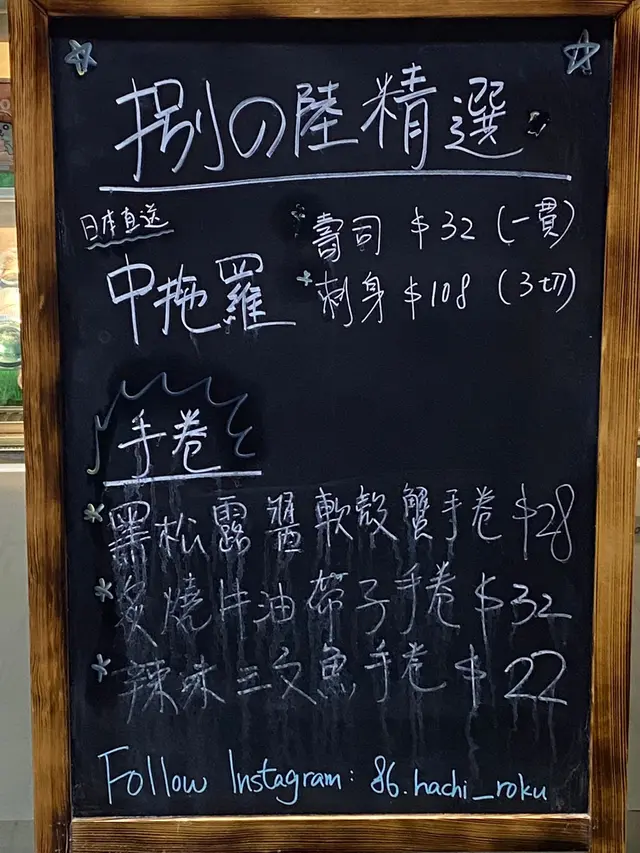 捌の陸精選
日本直送
中拖羅
* 壽司 $32 (一貫)
* 刺身 $108 (3切)
手卷
* 黑松露醬軟殼蟹手卷 $28
* 炙燒牛油帶子手卷 $32
* 辣味三文魚手卷 $22
Follow Instagram: 86.hachi_roku